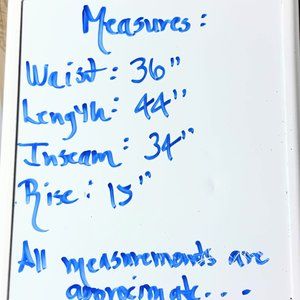 Measures:
Waist: 36"
Length: 44"
Inseam: 34"
Rise: 15"
All measurements are
approximate...